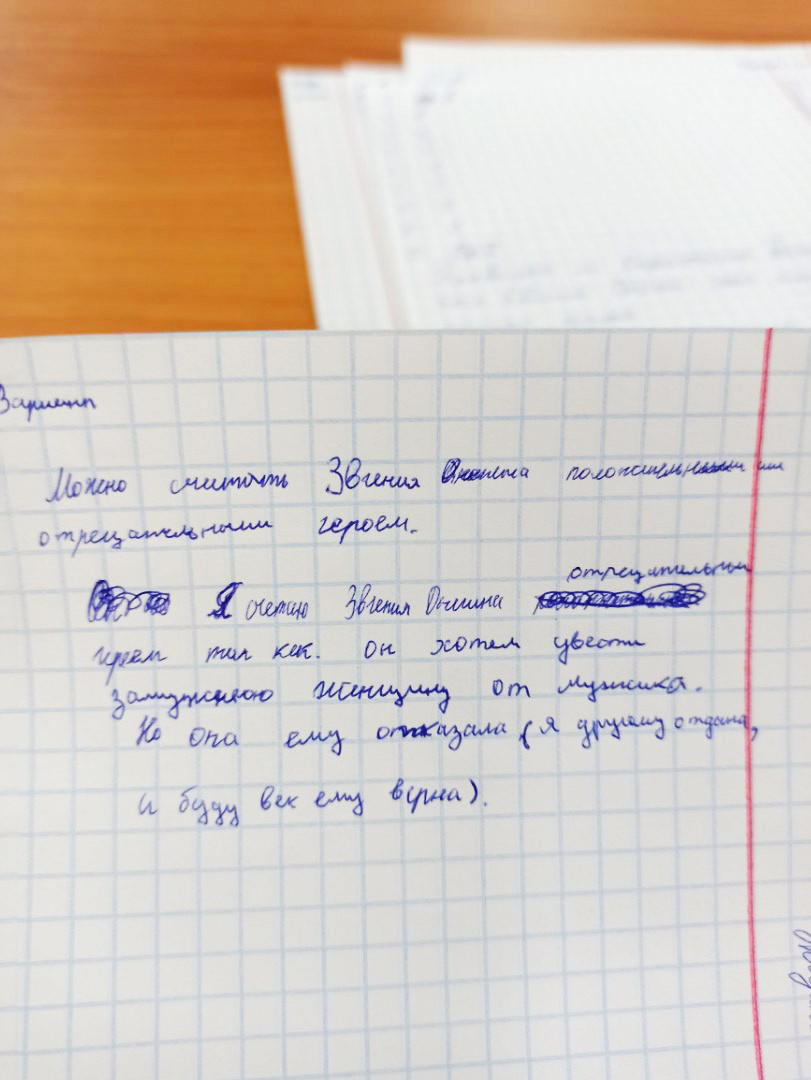 Вариант
Можно считать Звгения Онегина положительным или
отрецательным героем.
отрецательным
Я счетаю Звгения Онегина
героем так как. он хотел увести
замужнюю женщину от мужика.
Но она ему отказала (я другому отдана,
и буду век ему верна).